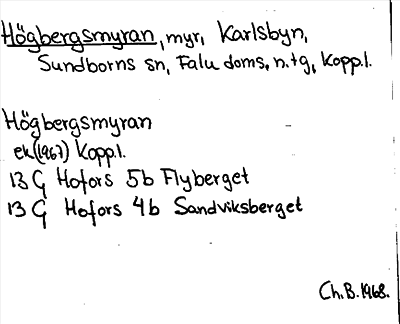 Högbergsmyran, myr, Karlsbyn,
Sundborns sn, Falu doms. n. tg, Kopp.l.
Högbergsmyran
ek (1967) Kopp.l.
13 G Hofors 5b Flyberget
13 G Hofors 4b Sandviksberget
Ch.B. 1968.